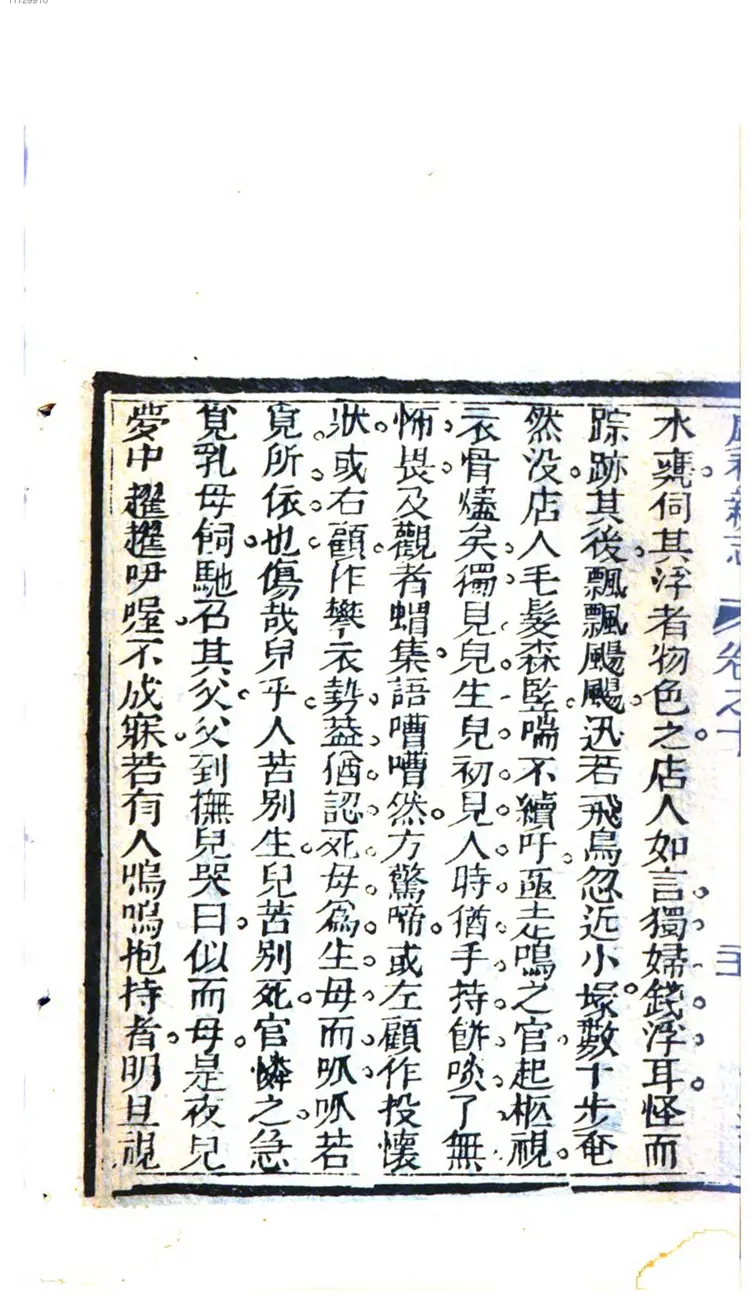 虞初新志 卷之十
水甕伺其浮者物色之店人如言獨婦錢浮耳怪而
踪跡其後飄飄颺颺迅若飛鳥忽近小塚數十步奄
然没店人毛髮森竪喘不續吁亟走鳴之官起柩視
衣骨燼矣獨見兒生兒初見人時猶手持餅啖了無
怖畏及觀者蝟集語嘈嘈然方驚啼或左顧作投懷
狀或右顧作攀衣勢蓋猶認死母爲生母而呱呱若
覓所依也傷哉兒乎人苦別生兒苦別死官憐之急
覓乳母飼馳召其父父到撫兒哭曰似而母是夜兒
夢中趯趯咿喔不成寐若有人嗚嗚抱持者明旦視